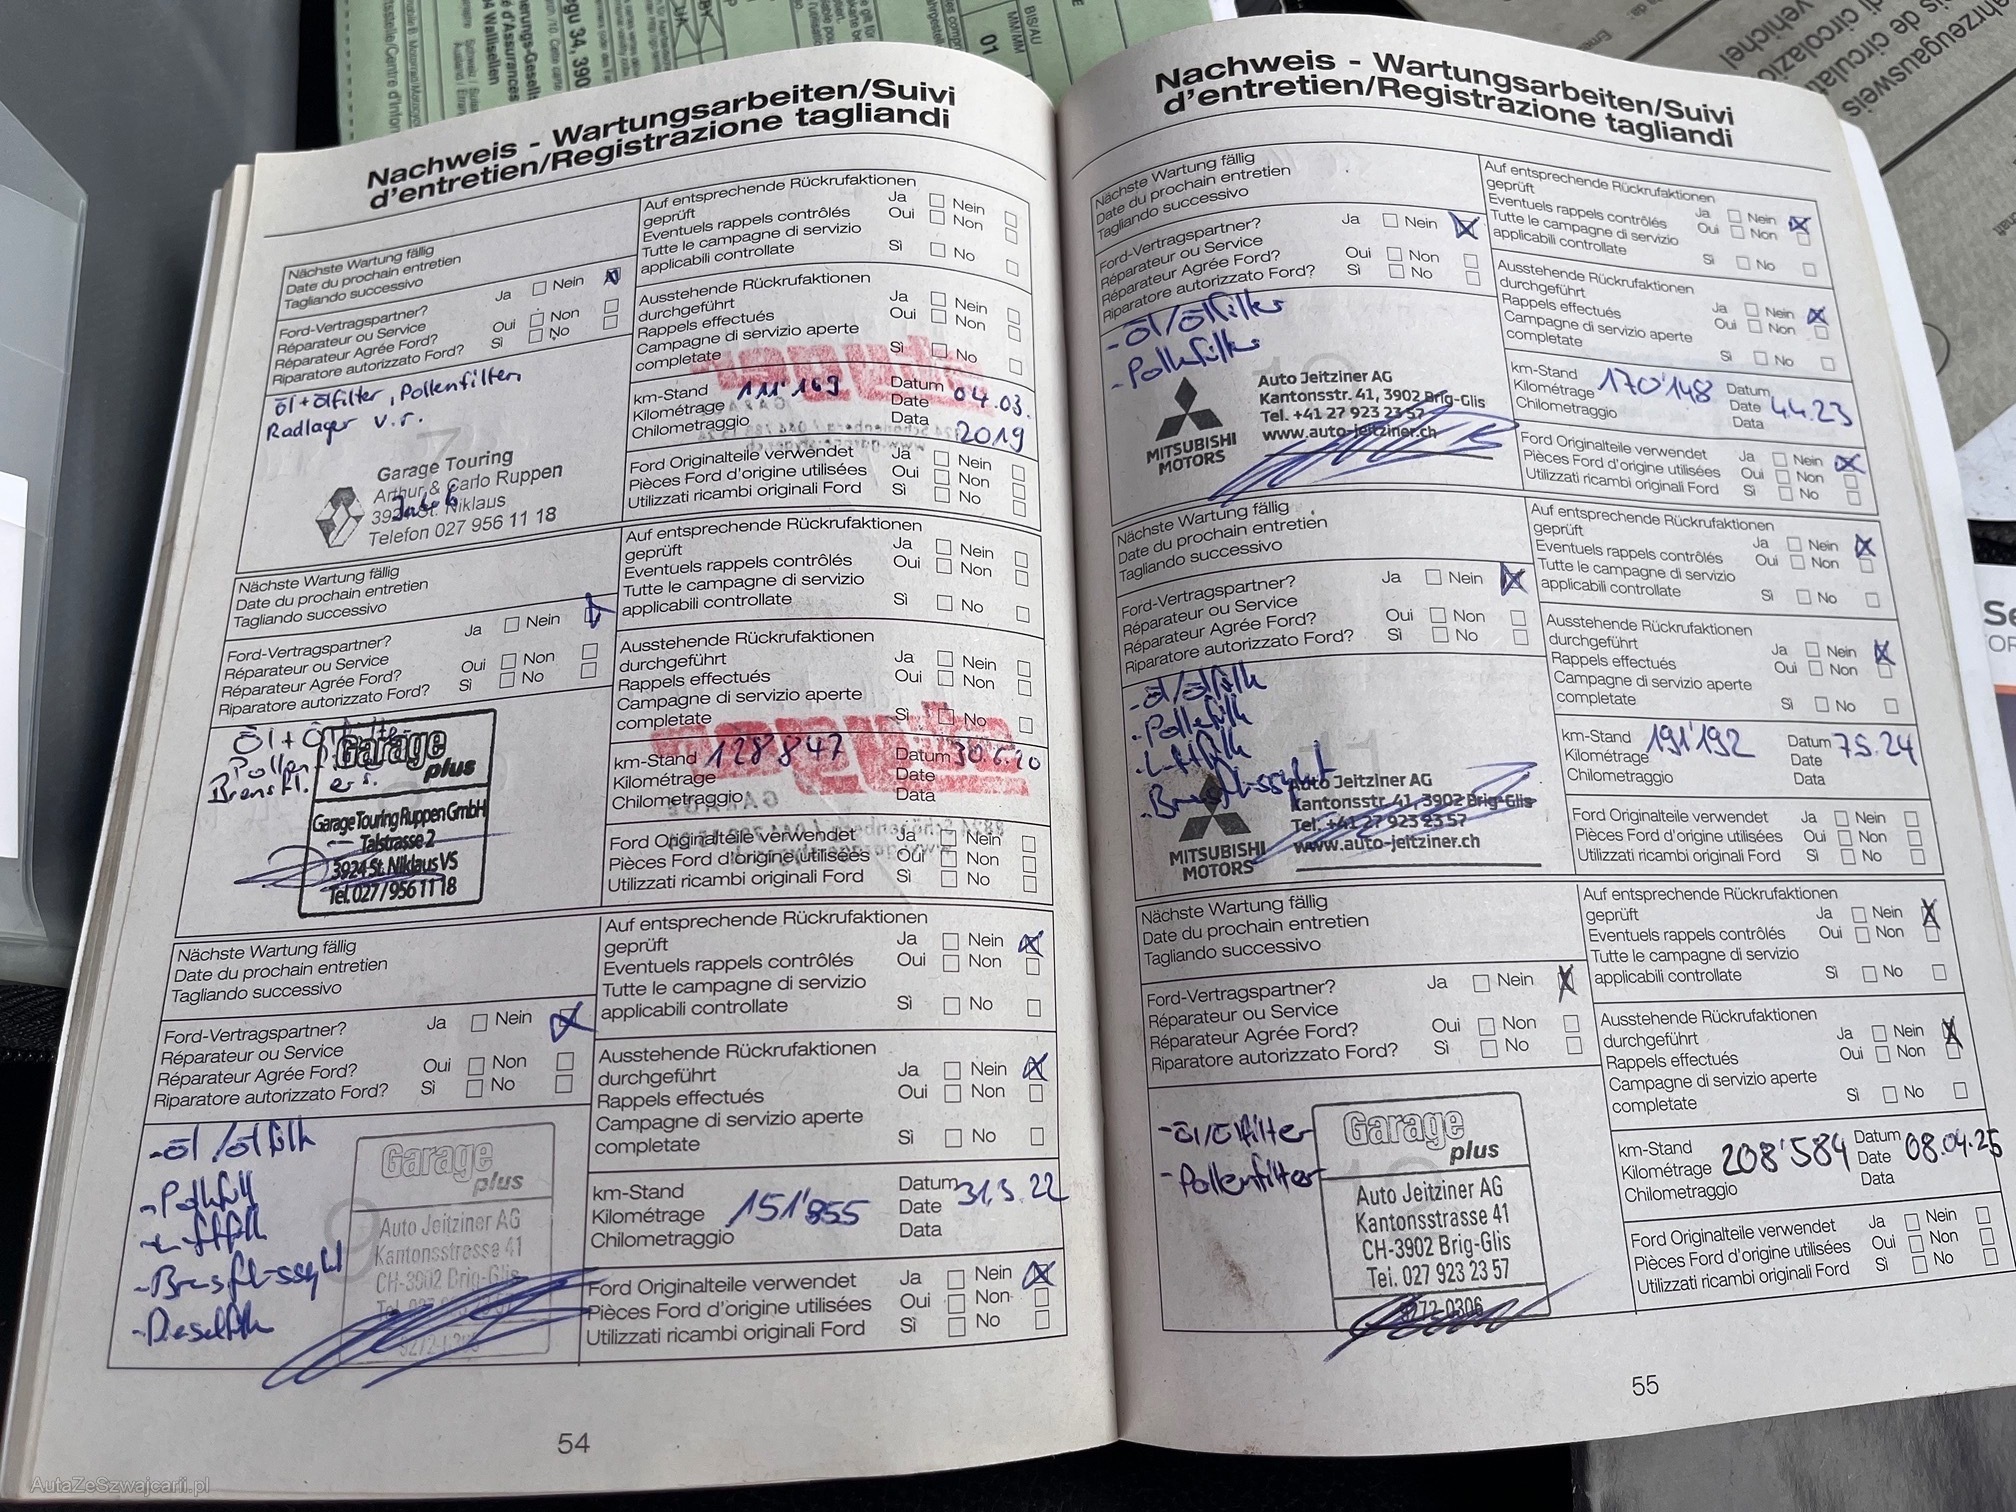 Nachweis - Wartungsarbeiten/Suivi
d'entretien/Registrazione tagliandi
Nächste Wartung fällig
Date du prochain entretien
Tagliando successivo
Ford-Vertragspartner? Ja Nein
Réparateur ou Service
Réparateur Agrée Ford? Oui Non
Riparatore autorizzato Ford? Sì No
öl+ölfilter, Pollenfilter
Radlager v.r.
Garage Touring
Arthur & Carlo Ruppen
3924 St. Niklaus
Telefon 027 956 11 18
Auf entsprechende Rückrufaktionen
geprüft Ja Nein
Eventuels rappels contrôlés Oui Non
Tutte le campagne di servizio
applicabili controllate Sì No
Ausstehende Rückrufaktionen
durchgeführt Ja Nein
Rappels effectués Oui Non
Campagne di servizio aperte
completate Sì No
km-Stand 111'169 Datum 04.03.
Kilométrage Date 2019
Chilometraggio Data
Ford Originalteile verwendet Ja Nein
Pièces Ford d'origine utilisées Oui Non
Utilizzati ricambi originali Ford Sì No
Nächste Wartung fällig
Date du prochain entretien
Tagliando successivo
Ford-Vertragspartner? Ja Nein
Réparateur ou Service
Réparateur Agrée Ford? Oui Non
Riparatore autorizzato Ford? Sì No
Garage
plus
Garage Touring Ruppen GmbH
Talstrasse 2
3924 St. Niklaus VS
Tel. 027 / 956 11 18
Auf entsprechende Rückrufaktionen
geprüft Ja Nein
Eventuels rappels contrôlés Oui Non
Tutte le campagne di servizio
applicabili controllate Sì No
Ausstehende Rückrufaktionen
durchgeführt Ja Nein
Rappels effectués Oui Non
Campagne di servizio aperte
completate Sì No
km-Stand 128847 Datum 30.6.20
Kilométrage Date
Chilometraggio Data
Ford Originalteile verwendet Ja Nein
Pièces Ford d'origine utilisées Oui Non
Utilizzati ricambi originali Ford Sì No
Nächste Wartung fällig
Date du prochain entretien
Tagliando successivo
Ford-Vertragspartner? Ja Nein
Réparateur ou Service
Réparateur Agrée Ford? Oui Non
Riparatore autorizzato Ford? Sì No
Garage
plus
Auto Jeitziner AG
Kantonsstrasse 41
CH-3902 Brig-Glis
Auf entsprechende Rückrufaktionen
geprüft Ja Nein
Eventuels rappels contrôlés Oui Non
Tutte le campagne di servizio
applicabili controllate Sì No
Ausstehende Rückrufaktionen
durchgeführt Ja Nein
Rappels effectués Oui Non
Campagne di servizio aperte
completate Sì No
km-Stand 151'855 Datum 31.3.22
Kilométrage Date
Chilometraggio Data
Ford Originalteile verwendet Ja Nein
Pièces Ford d'origine utilisées Oui Non
Utilizzati ricambi originali Ford Sì No
54
Nachweis - Wartungsarbeiten/Suivi
d'entretien/Registrazione tagliandi
Nächste Wartung fällig
Date du prochain entretien
Tagliando successivo
Ford-Vertragspartner? Ja Nein
Réparateur ou Service
Réparateur Agrée Ford? Oui Non
Riparatore autorizzato Ford? Sì No
- öl/ölfilter
- Pollenfilter
MITSUBISHI
MOTORS
Auto Jeitziner AG
Kantonsstr. 41, 3902 Brig-Glis
Tel. +41 27 923 23 57
www.auto-jeitziner.ch
Auf entsprechende Rückrufaktionen
geprüft Ja Nein
Eventuels rappels contrôlés Oui Non
Tutte le campagne di servizio
applicabili controllate Sì No
Ausstehende Rückrufaktionen
durchgeführt Ja Nein
Rappels effectués Oui Non
Campagne di servizio aperte
completate Sì No
km-Stand 170'148 Datum 4.4.23
Kilométrage Date
Chilometraggio Data
Ford Originalteile verwendet Ja Nein
Pièces Ford d'origine utilisées Oui Non
Utilizzati ricambi originali Ford Sì No
Nächste Wartung fällig
Date du prochain entretien
Tagliando successivo
Ford-Vertragspartner? Ja Nein
Réparateur ou Service
Réparateur Agrée Ford? Oui Non
Riparatore autorizzato Ford? Sì No
MITSUBISHI
MOTORS
Auto Jeitziner AG
Kantonsstr. 41, 3902 Brig-Glis
Tel. +41 27 923 23 57
www.auto-jeitziner.ch
Auf entsprechende Rückrufaktionen
geprüft Ja Nein
Eventuels rappels contrôlés Oui Non
Tutte le campagne di servizio
applicabili controllate Sì No
Ausstehende Rückrufaktionen
durchgeführt Ja Nein
Rappels effectués Oui Non
Campagne di servizio aperte
completate Sì No
km-Stand 191'192 Datum 7.5.24
Kilométrage Date
Chilometraggio Data
Ford Originalteile verwendet Ja Nein
Pièces Ford d'origine utilisées Oui Non
Utilizzati ricambi originali Ford Sì No
Nächste Wartung fällig
Date du prochain entretien
Tagliando successivo
Ford-Vertragspartner? Ja Nein
Réparateur ou Service
Réparateur Agrée Ford? Oui Non
Riparatore autorizzato Ford? Sì No
- Öl/Ölfilter
- Pollenfilter
Garage
plus
Auto Jeitziner AG
Kantonsstrasse 41
CH-3902 Brig-Glis
Tel. 027 923 23 57
9272-0306
Auf entsprechende Rückrufaktionen
geprüft Ja Nein
Eventuels rappels contrôlés Oui Non
Tutte le campagne di servizio
applicabili controllate Sì No
Ausstehende Rückrufaktionen
durchgeführt Ja Nein
Rappels effectués Oui Non
Campagne di servizio aperte
completate Sì No
km-Stand 208'584 Datum 08.04.25
Kilométrage Date
Chilometraggio Data
Ford Originalteile verwendet Ja Nein
Pièces Ford d'origine utilisées Oui Non
Utilizzati ricambi originali Ford Sì No
55
AutaZeSzwajcarii.pl